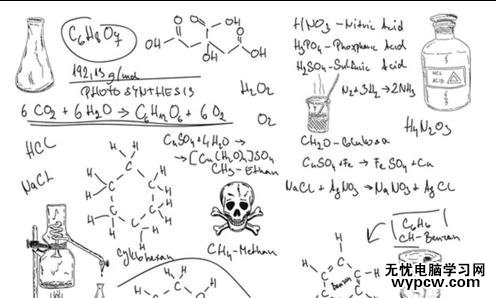 C6H8O7
192,13 g/mol
PHOTOSYNTHESIS
6 CO2 + 6 H2O → C6H12O6 + 6 O2
H2O2
O2
HCl
NaCl
CuSO4 + 4H2O →
→ [Cu(H2O)4]SO4
CH3 - Ethan
Cyklohexan
CH4 - Methan
OH
O
O
OH
OH
OH
O
HNO3 - Nitric Acid
H3PO4 - Phosphoric Acid
H2SO4 - Sulfuric Acid
N2 + 3H2 → 2NH3
HCL
ACID
H4N2O3
CH2O - Glukosa
CuSO4 + Fe → FeSO4 + Cu
NaCl + AgNO3 → NaNO3 + AgCl
C6H6
CH - Benzen
Benzen
无忧电脑学习网
wypcw.com